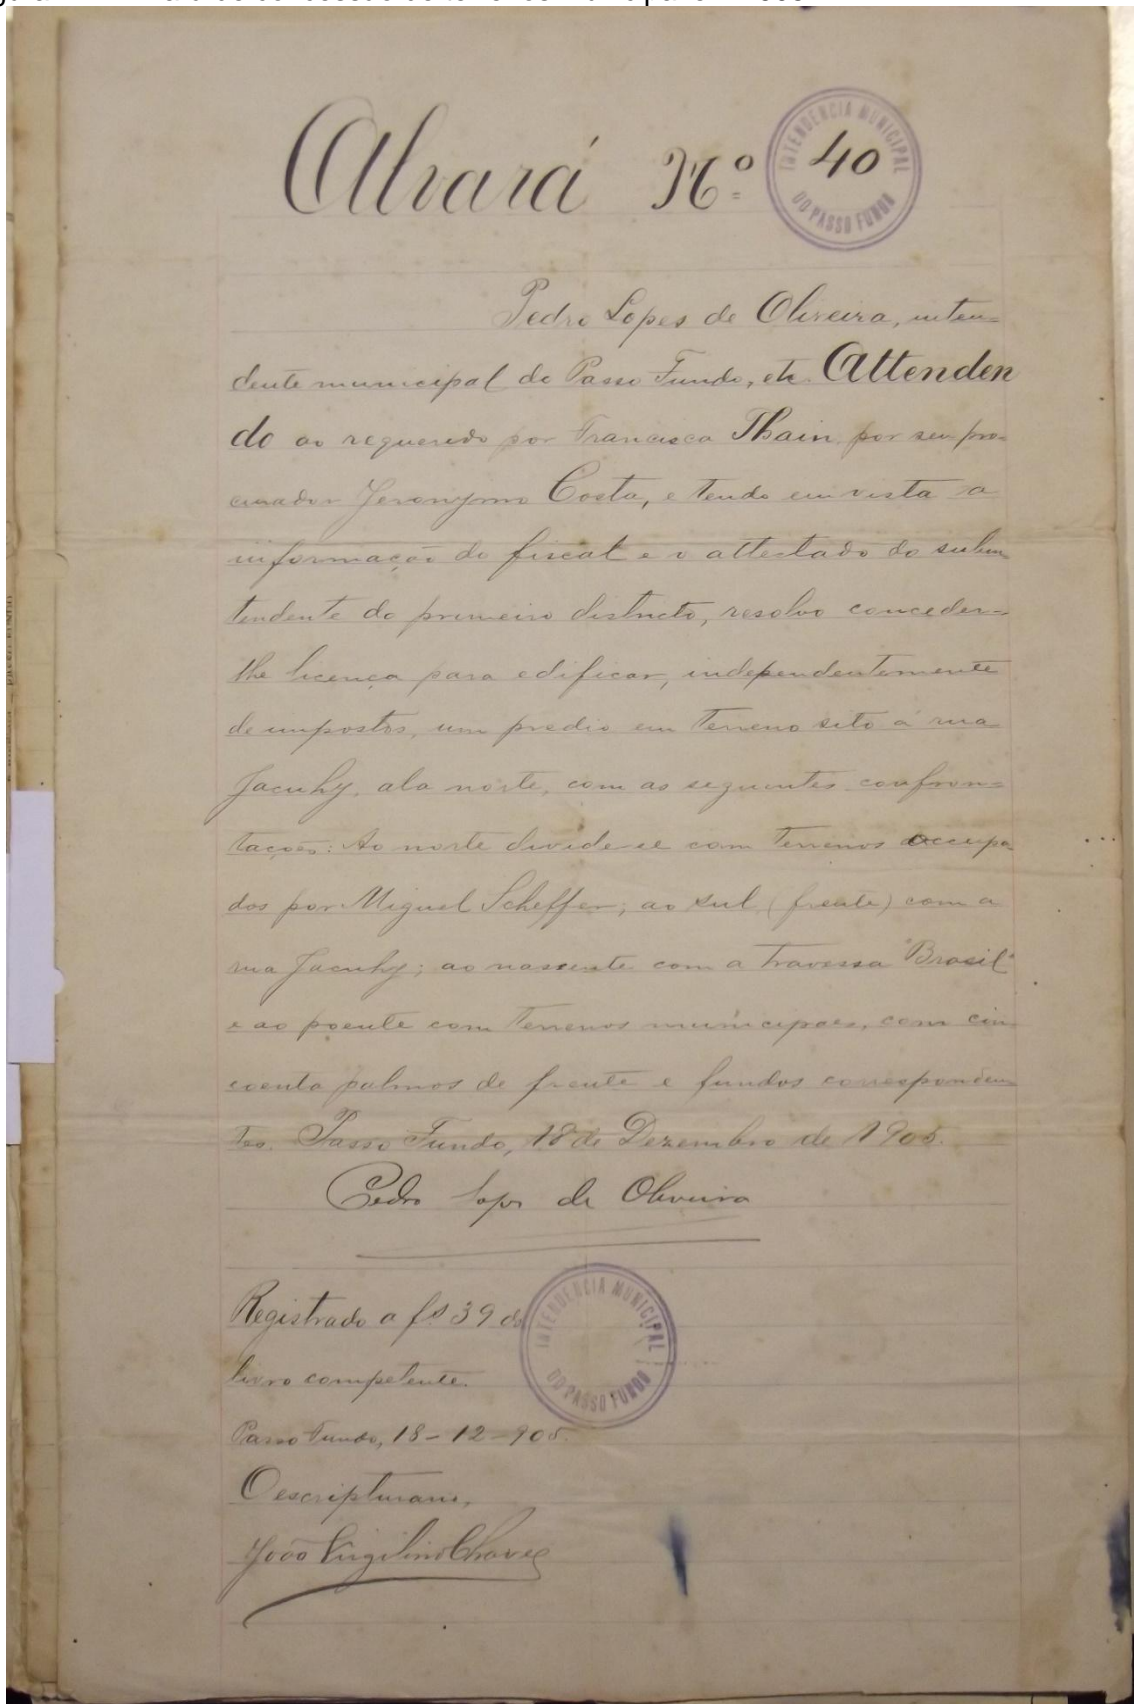 Alvará Nº 40
INTENDENCIA MUNICIPAL
DO PASSO FUNDO
Pedro Lopes de Oliveira, inten=
dente municipal do Passo Fundo, etc. Attenden
do ao requerido por Francisca Thain, por seu pro=
curador Jeronymo Costa, e tendo em vista a
informação do fiscal e o attestado do subin
tendente do primeiro districto, resolvo conceder=
lhe licença para edificar, independentemente
de impostos, um predio em terreno sito á rua
Jacuhy, ala norte, com as seguintes confron=
tações: Ao norte divide-se com terrenos occupa
dos por Miguel Scheffer; ao sul (frente) com a
rua Jacuhy; ao nascente com a travessa "Brasil"
e ao poente com terrenos municipaes, com cin
coenta palmos de frente e fundos corresponden
tes. Passo Fundo, 18 de Dezembro de 1905.
Pedro Lopes de Oliveira
Registrado a fs 39 do
livro competente.
INTENDENCIA MUNICIPAL
DO PASSO FUNDO
Passo Fundo, 18-12-905.
O escripturario,
João Virgilino Chaves